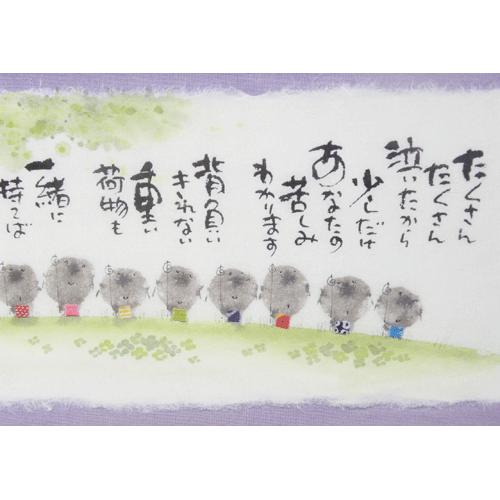 たくさん
たくさん
泣いたから
少しだけ
あなたの
苦しみ
わかります
背負い
きれない
重い
荷物も
一緒に
持てば